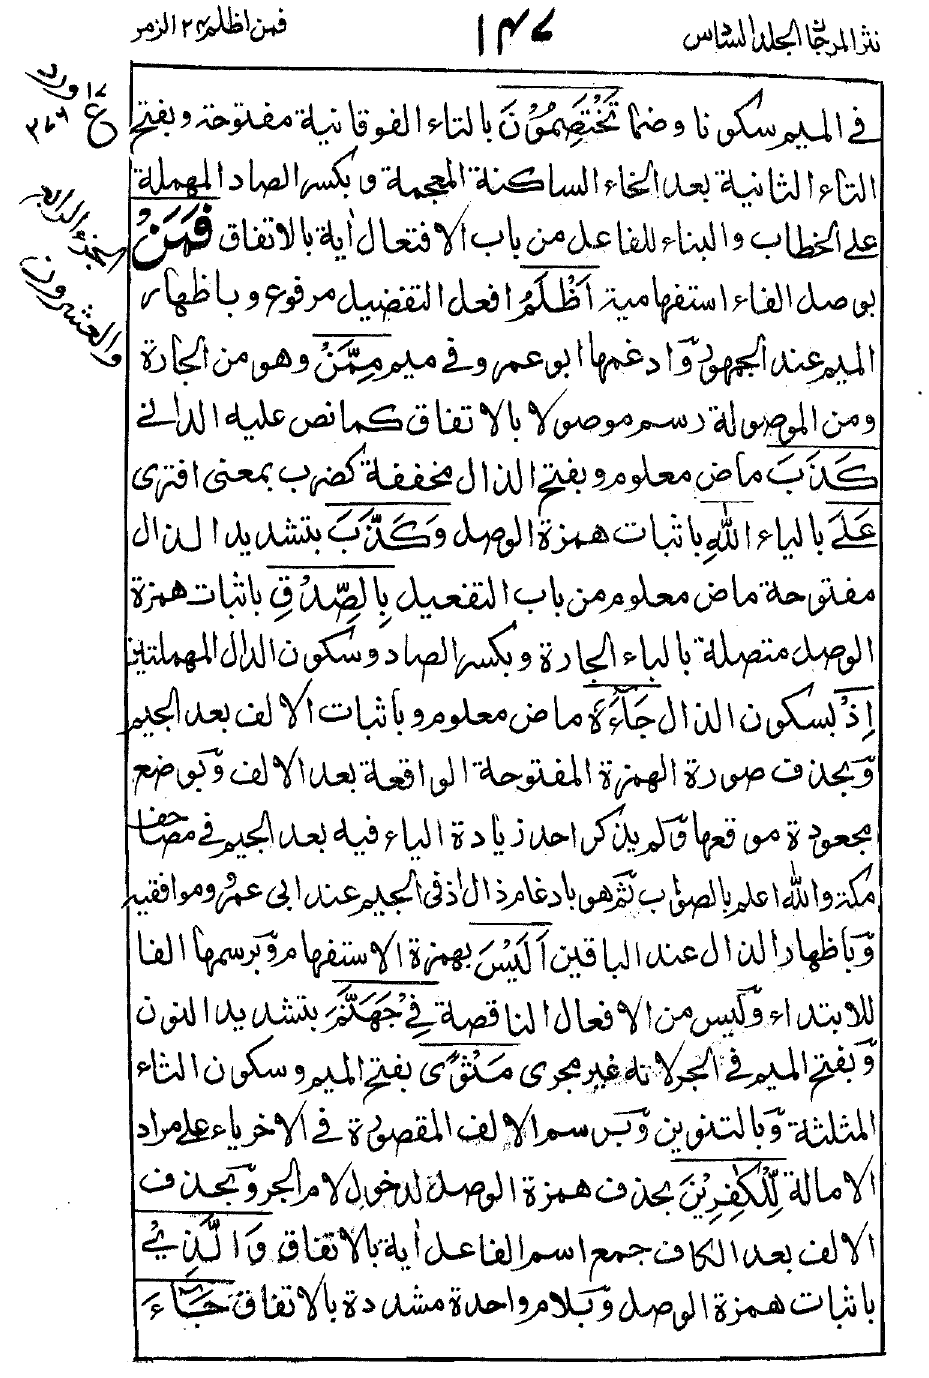 نثر المرجان الجلد السادس
١٤٧
فمن اظلم ٢٤ الزمر
في الميم سكونا وضما تَخْتَصِمُوْنَ بالتاء الفوقانية مفتوحة وبفتح
التاء الثانية بعد الخاء الساكنة المعجمة وبكسر الصاد المهملة
على الخطاب والبناء للفاعل من باب الافتعال اٰية بالاتفاق فَمَنْ
بوصل الفاء استفهامية اَظْلَمُ افعل التفضيل مرفوع وباظهار
الميم عند الجمهور وّادغمها ابو عمرو في ميم مِمَّنْ وهو من الجارة
ومن الموصولة رسم موصولا بالاتفاق كما نص عليه الداني
كَذَبَ ماض معلوم وبفتح الذال مخففة كضرب بمعنى افترى
عَلَى بالياء اللّٰهِ باثبات همزة الوصل وَكَذَّبَ بتشديد الذال
مفتوحة ماض معلوم من باب التفعيل بِالصِّدْقِ باثبات همزة
الوصل متصلة بالباء الجارة وبكسر الصاد وسكون الدال المهملتين
اِذْ بسكون الذال جَآءَهٗ ماض معلوم وباثبات الالف بعد الجيم
وّبحذف صورة الهمزة المفتوحة الواقعة بعد الالف وّبوضع
مجعودة موقعها وّلم يذكر احد زيادة الياء فيه بعد الجيم في مصاحف
مكة والله اعلم بالصواب ثم هو بادغام ذال اذ في الجيم عند ابى عمرو وموافقيه
وّباظهار الذال عند الباقين اَلَيْسَ بهمزة الاستفهام وّبرسمها الفا
للابتداء وّليس من الافعال الناقصة فِيْ جَهَنَّمَ بتشديد النون
وّبفتح الميم في الجر لانه غير مجرى مَثْوًى بفتح الميم وسكون الثاء
المثلثة وّبالتنوين وّبرسم الالف المقصورة في الاخر ياء على مراد
الامالة لِّلْكٰفِرِيْنَ بحذف همزة الوصل لدخول لام الجر وّبحذف
الالف بعد الكاف جمع اسم الفاعل اٰية بالاتفاق وَالَّذِيْ
باثبات همزة الوصل وّبلام واحدة مشددة بالاتفاق جَآءَ
ع
الجزء الرابع
والعشرون